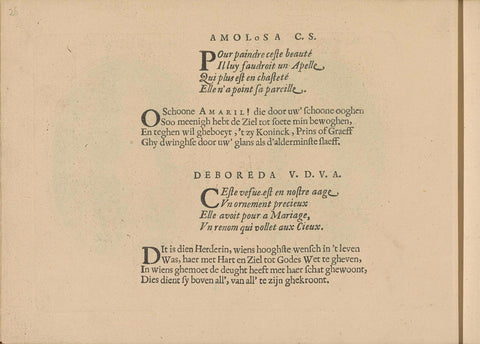 26
AMOLOSA C. S.
Pour paindre ceste beauté
Il luy faudroit un Apelle,
Qui plus est en chasteté
Elle n'a point sa parcille.
O Schoone AMARIL! die door uw' schoone ooghen
Soo meenigh hebt de Ziel tot soete min bewoghen,
En teghen wil gheboeyt, 't zy Koninck, Prins of Graeff
Ghy dwinghse door uw' glans als d'alderminste slaeff.
DEBOREDA V. D. V. A.
Ceste vefue est en nostre aage,
Vn ornement precieux
Elle avoit pour a Mariage,
Vn renom qui vollet aux Cieux.
Dit is dien Herderin, wiens hooghste wensch in 't leven
Was, haer met Hart en Ziel tot Godes Wet te gheven,
In wiens ghemoet de deught heeft met haer schat ghewoont,
Dies dient sy boven all', van all' te zijn ghekroont.